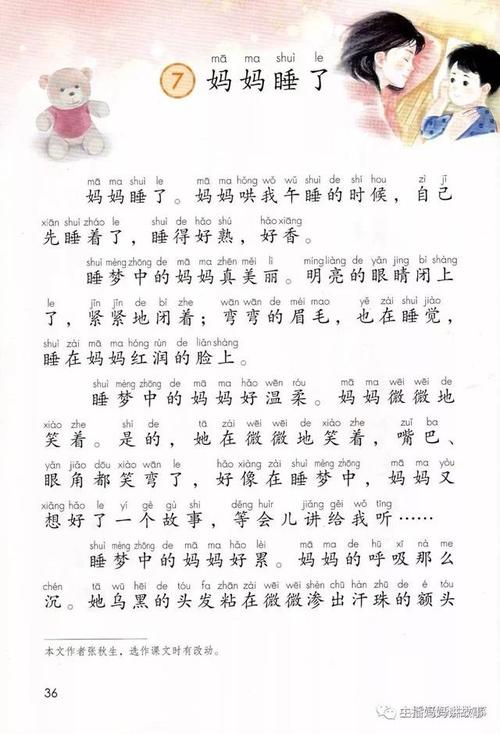 mā ma shuì le
7 妈妈睡了
mā ma shuì le mā ma hǒng wǒ wǔ shuì de shí hou zì jǐ
妈妈睡了。妈妈哄我午睡的时候，自己
xiān shuì zháo le shuì de hǎo shú hǎo xiāng
先睡着了，睡得好熟，好香。
shuì mèng zhōng de mā ma zhēn měi lì míng liàng de yǎn jing bì shàng
睡梦中的妈妈真美丽。明亮的眼睛闭上
le jǐn jǐn de bì zhe wān wān de méi mao yě zài shuì jiào
了，紧紧地闭着；弯弯的眉毛，也在睡觉，
shuì zài mā ma hóng rùn de liǎn shàng
睡在妈妈红润的脸上。
shuì mèng zhōng de mā ma hǎo wēn róu mā ma wēi wēi de
睡梦中的妈妈好温柔。妈妈微微地
xiào zhe shì de tā zài wēi wēi de xiào zhe zuǐ ba
笑着。是的，她在微微地笑着，嘴巴、
yǎn jiǎo dōu xiào wān le hǎo xiàng zài shuì mèng zhōng mā ma yòu
眼角都笑弯了，好像在睡梦中，妈妈又
xiǎng hǎo le yí gè gù shi děng huìr jiǎng gěi wǒ tīng
想好了一个故事，等会儿讲给我听……
shuì mèng zhōng de mā ma hǎo lèi mā ma de hū xī nà me
睡梦中的妈妈好累。妈妈的呼吸那么
chén tā wū hēi de tóu fa zhān zài wēi wēi shèn chū hàn zhū de é tóu
沉。她乌黑的头发粘在微微渗出汗珠的额头
本文作者张秋生，选作课文时有改动。
36
主播妈妈讲故事